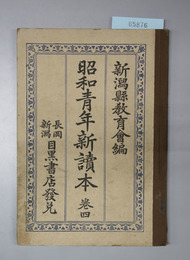 05876
新潟縣教育會編
昭和青年新讀本 巻四
長岡
新潟
目黒書店發兌